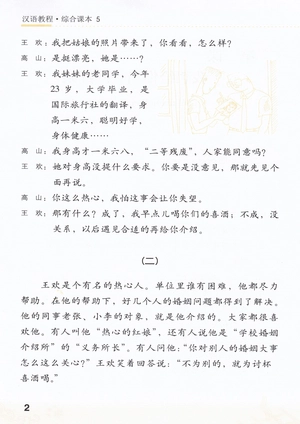 汉语教程·综合课本 5
王 欢：我把姑娘的照片带来了，你看看，怎么样？
高 山：是挺漂亮，她是……？
王 欢：我妹妹的老同学，今年
23 岁，大学毕业，是
国际旅行社的翻译，身
高一米六，聪明好学，
身体健康……
高 山：我身高才一米六八，“二等残废”，人家能同意吗？
王 欢：她对身高没提什么要求。你要是没意见，那就先见个
面再说。
高 山：你这么热心，我怕这事会让你失望。
王 欢：那有什么？成了，我早点儿喝你们的喜酒；不成，没
关系，以后遇见合适的再给你介绍。
（二）
王欢是个有名的热心人。单位里谁有困难，他都尽力
帮助。在他的帮助下，好几个人的婚姻问题都得到了解决。
他的同事老张、小李的对象，就是他介绍的。大家都很喜
欢他。有人叫他“热心的红娘”，还有人说他是“学校婚姻
介绍所”的“义务所长”。有人问他：“你对别人的婚姻大事
怎么这么关心？”王欢笑着回答说：“不为别的，就为讨杯
喜酒喝。”
2